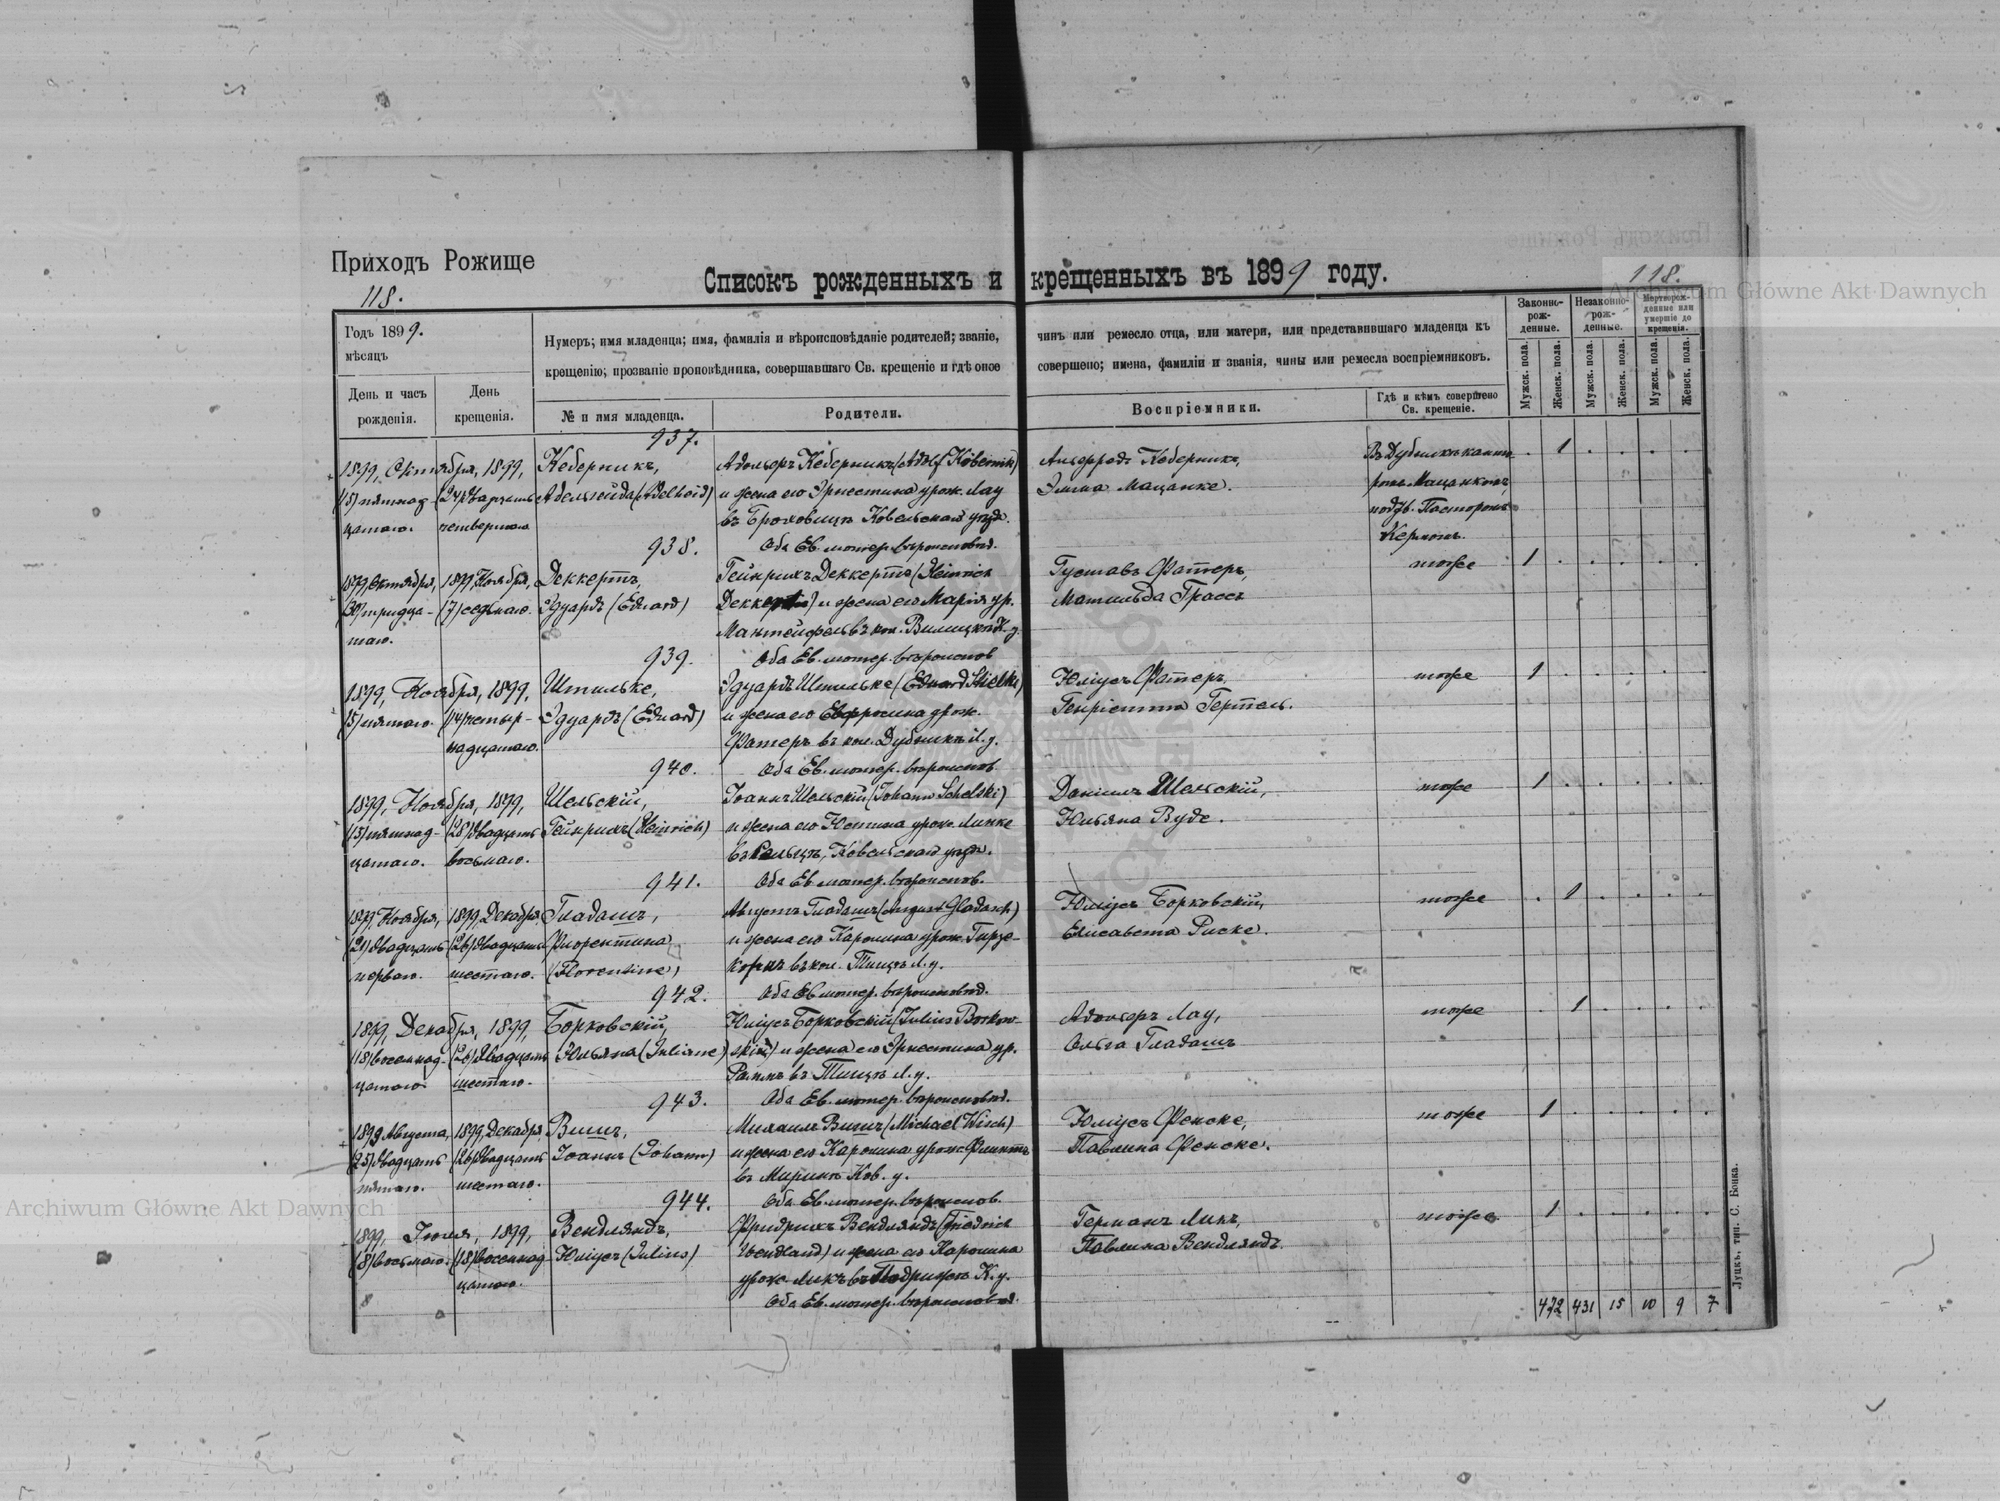 Приходъ Рожище
Списокъ рожденныхъ и крещенныхъ въ 1899 году.
118.
118.
Archiwum Główne Akt Dawnych
Годъ 1899.
мѣсяцъ
День и часъ
рожденія.
День
крещенія.
Нумеръ; имя младенца; имя, фамилія и вѣроисповѣданіе родителей; званіе, чинъ или ремесло отца, или матери, или представившаго младенца къ
крещенію; прозваніе проповѣдника, совершавшаго Св. крещеніе и гдѣ оное совершено; имена, фамиліи и званія, чины или ремесла воспріемниковъ.
№ и имя младенца.
Родители.
Воспріемники.
Гдѣ и кѣмъ совершено
Св. крещеніе.
Законно-
рож-
денные.
Незаконно-
рож-
денные.
Мертворож-
денные или
умершіе до
крещенія.
Мужск. пола.
Женск. пола.
Мужск. пола.
Женск. пола.
Мужск. пола.
Женск. пола.
937.
1899, Октября, 1899, Кеберникъ, Адольфъ Кеберникъ (Adolf Köbernik) Альфредъ Кеберникъ, Въ Дубникѣ канто- . 1 . . . .
(15) пятнад- (24) двадцать Адельгейда (Adelheid) и жена его Эрнестина урож. Лау Эмма Мацанке.
цатаго. четвертаго въ Ковельскаго уѣзда. Пасторомъ
Оба Ев. лютер. вѣроисповѣд. Керномъ.
938.
1899, Октября, 1899, Ноября, Деккертъ, Гейнрихъ Деккертъ (Heinrich Густавъ Фатеръ, тоже 1 . . . . .
(30) тридца- (7) седьмаго. Эдуардъ (Eduard) и жена его Марія ур. Матильда Грассъ
таго. Мантейфель въ кол.
Оба Ев. лютер. вѣроисповѣд
939.
1899, Ноября, 1899, Штильке, Эдуардъ Штильке (Eduard Stielke) Юліусъ Фатеръ, тоже 1 . . . . .
(5) пятаго. (14) четыр- Эдуардъ (Eduard) и жена его Евфросина урож. Генріетта Гертель.
надцатаго. Фатеръ въ кол. Дубникъ Л. у.
Оба Ев. лютер. вѣроисповѣд.
940.
1899, Ноября, 1899, Шельскій, Іоаннъ Шельскій (Johann Schelski) Даніилъ Шельскій, тоже 1 . . . . .
(15) пятнад- (28) двадцать Гейнрихъ (Heinrich) и жена его Юстина урож. Линке Юльяна Вуде.
цатаго. восьмаго. Ковельскаго уѣзда.
Оба Ев. лютер. вѣроисповѣд.
941.
1899, Ноября, 1899, Декабря Гладашъ, Августъ Гладашъ (August Gladasch) Юліусъ Борковскій, тоже . 1 . . . .
(21) двадцать (26) двадцать Флорентина и жена его Каролина урож. Гирзе- Елисавета Риске.
перваго. шестаго. (Florentine) корнъ въ кол. Л. у.
Оба Ев. лютер. вѣроисповѣд.
942.
1899, Декабря, 1899, Борковскій, Юліусъ Борковскій (Julius Borkow- Адольфъ Лау, тоже . 1 . . . .
(18) восемнад- (26) двадцать Юльяна (Juliane) ski) и жена его Эрнестина ур. Ольга Гладашъ
цатаго. шестаго. Л. у.
Оба Ев. лютер. вѣроисповѣд.
943.
1899 Августа, 1899, Декабря Вишъ, Михаилъ Вишъ (Michael Wisch) Юліусъ Фенске, тоже 1 . . . . .
(25) двадцать (26) двадцать Іоаннъ (Johann) и жена его Каролина урож. Павлина Фенске.
пятаго. шестаго. въ Ков. у.
Оба Ев. лютер. вѣроисповѣд.
944.
1899, Іюля, 1899, Вендляндъ, Фридрихъ Вендляндъ (Friedrich Германъ Ликъ, тоже. 1 . . . . .
(8) восьмаго. (18) восемнад- Юліусъ (Julius) Wendland) и жена его Каролина Павлина Вендляндъ.
цатаго. урож. Ликъ въ К. у.
Оба Ев. лютер. вѣроисповѣд.
472 431 15 10 9 7
Луцкъ, тип. С. Бонка.
Archiwum Główne Akt Dawnych